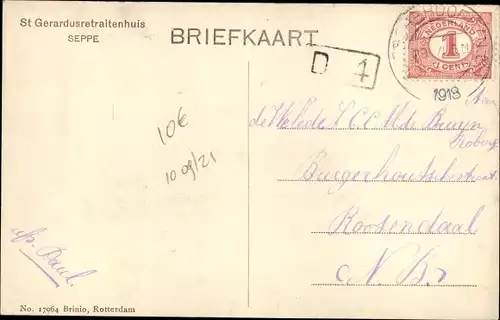 St Gerardusretraitenhuis
SEPPE
BRIEFKAART
NEDERLAND
1
1 CENT
D 4
1918
Aan
10€
10 09/21
Burgerhoutschestraat
Roosendaal
N. Br.
No. 17064 Brinio, Rotterdam